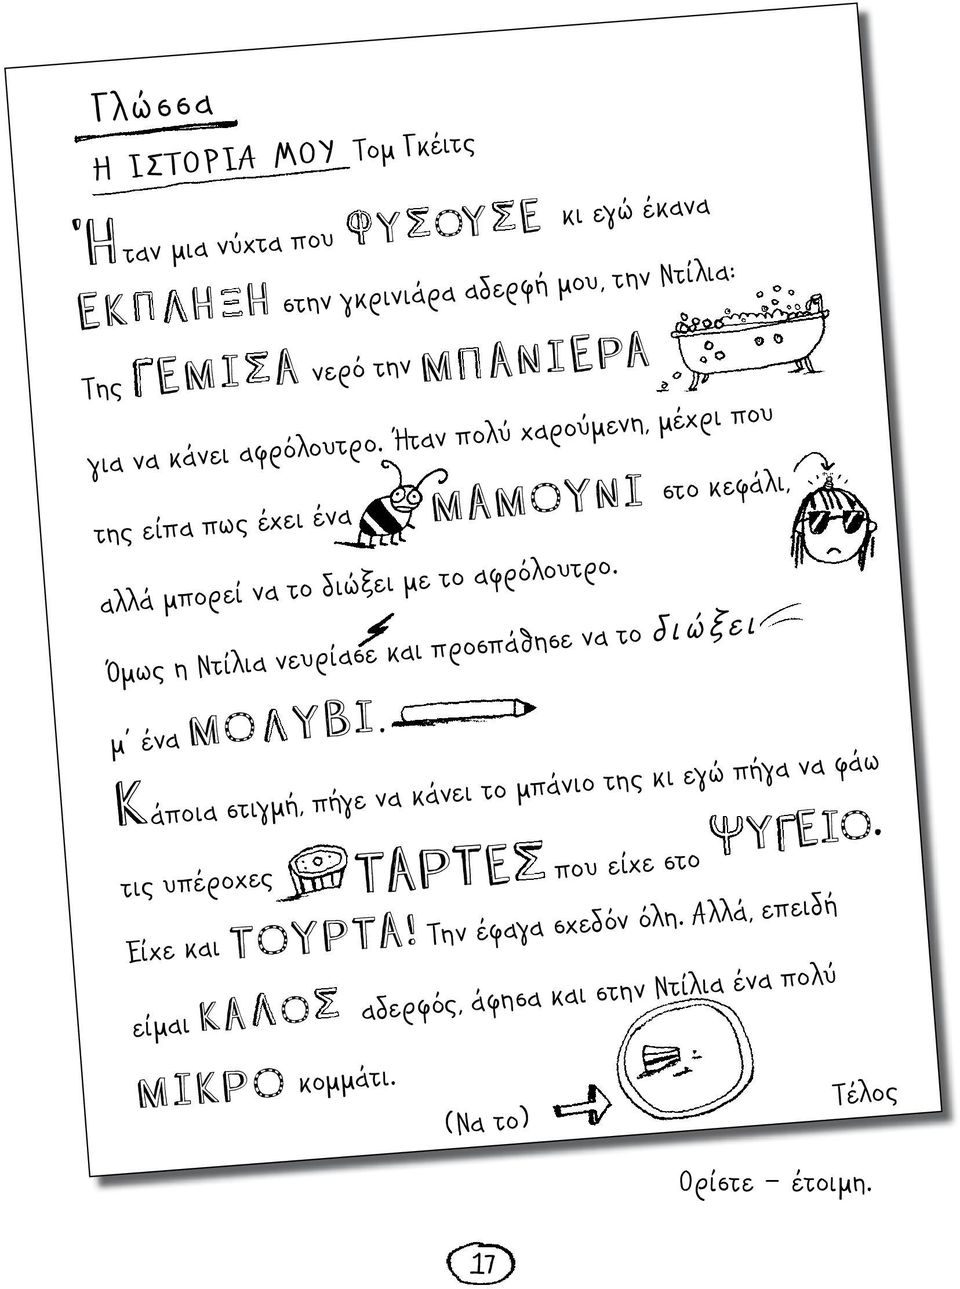 Γλώσσα
Η ΙΣΤΟΡΙΑ ΜΟΥ Τομ Γκέιτς
Ήταν μια νύχτα που ΦΥΣΟΥΣΕ κι εγώ έκανα
ΕΚΠΛΗΞΗ στην γκρινιάρα αδερφή μου, την Ντίλια:
Της ΓΕΜΙΣΑ νερό την ΜΠΑΝΙΕΡΑ
για να κάνει αφρόλουτρο. Ήταν πολύ χαρούμενη, μέχρι που
της είπα πως έχει ένα ΜΑΜΟΥΝΙ στο κεφάλι,
αλλά μπορεί να το διώξει με το αφρόλουτρο.
Όμως η Ντίλια νευρίασε και προσπάθησε να το διώξει
μ' ένα ΜΟΛΥΒΙ.
Κάποια στιγμή, πήγε να κάνει το μπάνιο της κι εγώ πήγα να φάω
τις υπέροχες ΤΑΡΤΕΣ που είχε στο ΨΥΓΕΙΟ.
Είχε και ΤΟΥΡΤΑ! Την έφαγα σχεδόν όλη. Αλλά, επειδή
είμαι ΚΑΛΟΣ αδερφός, άφησα και στην Ντίλια ένα πολύ
ΜΙΚΡΟ κομμάτι.
(Να το)
Τέλος
Ορίστε – έτοιμη.
17